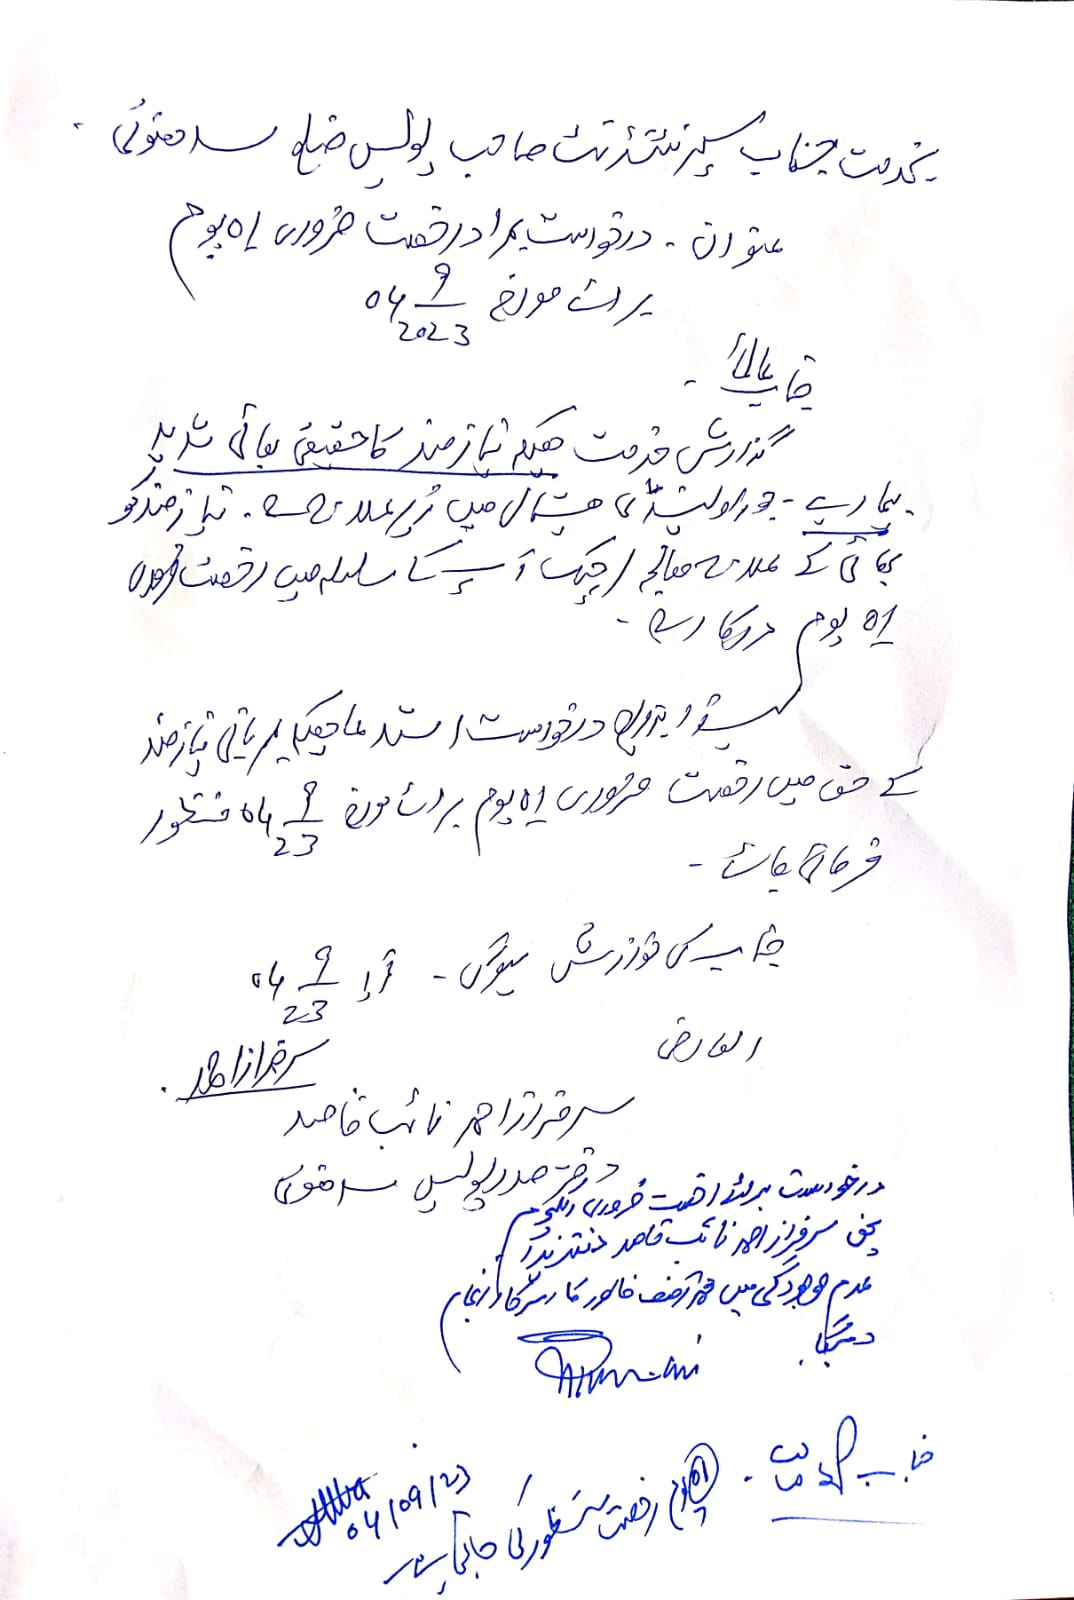 بخدمت جناب سپرنٹنڈنٹ صاحب پولیس ضلع سدھنوتی
عنوان ۔ درخواست بمراد رخصت ضروری 01 یوم
برائے مورخہ 04/9/2023
جناب عالی! ۔
گزارش خدمت ھیکہ نیازمند کا حقیقی بھائی شدید
بیمار ہے ۔ جو راولپنڈی ھسپتال میں زیر علاج ہے ۔ نیازمند کو
بھائی کے علاج معالجہ / چیک اپ کے سلسلہ میں رخصت ضروری
01 یوم درکار ہے ۔
بذریعہ درخواست استدعا ھیکہ مہربانی نیازمند
کے حق میں رخصت ضروری 01 یوم برائے مورخہ 04/9/23 منظور
فرمائی جائے ۔
جناب کی نوازش ہوگی ۔ 04/9/23
العارض
سرفراز احمد
سرفراز احمد نائب قاصد
دفتر صدر پولیس سدھنوتی
درخواست برائے رخصت ضروری یکیوم
بحق سرفراز احمد نائب قاصد دفتر ہذا
عدم موجودگی میں محمد آصف کار سرکار انجام
دے گا۔
جناب
01 یوم رخصت منظور کی جاتی ہے
04/09/23